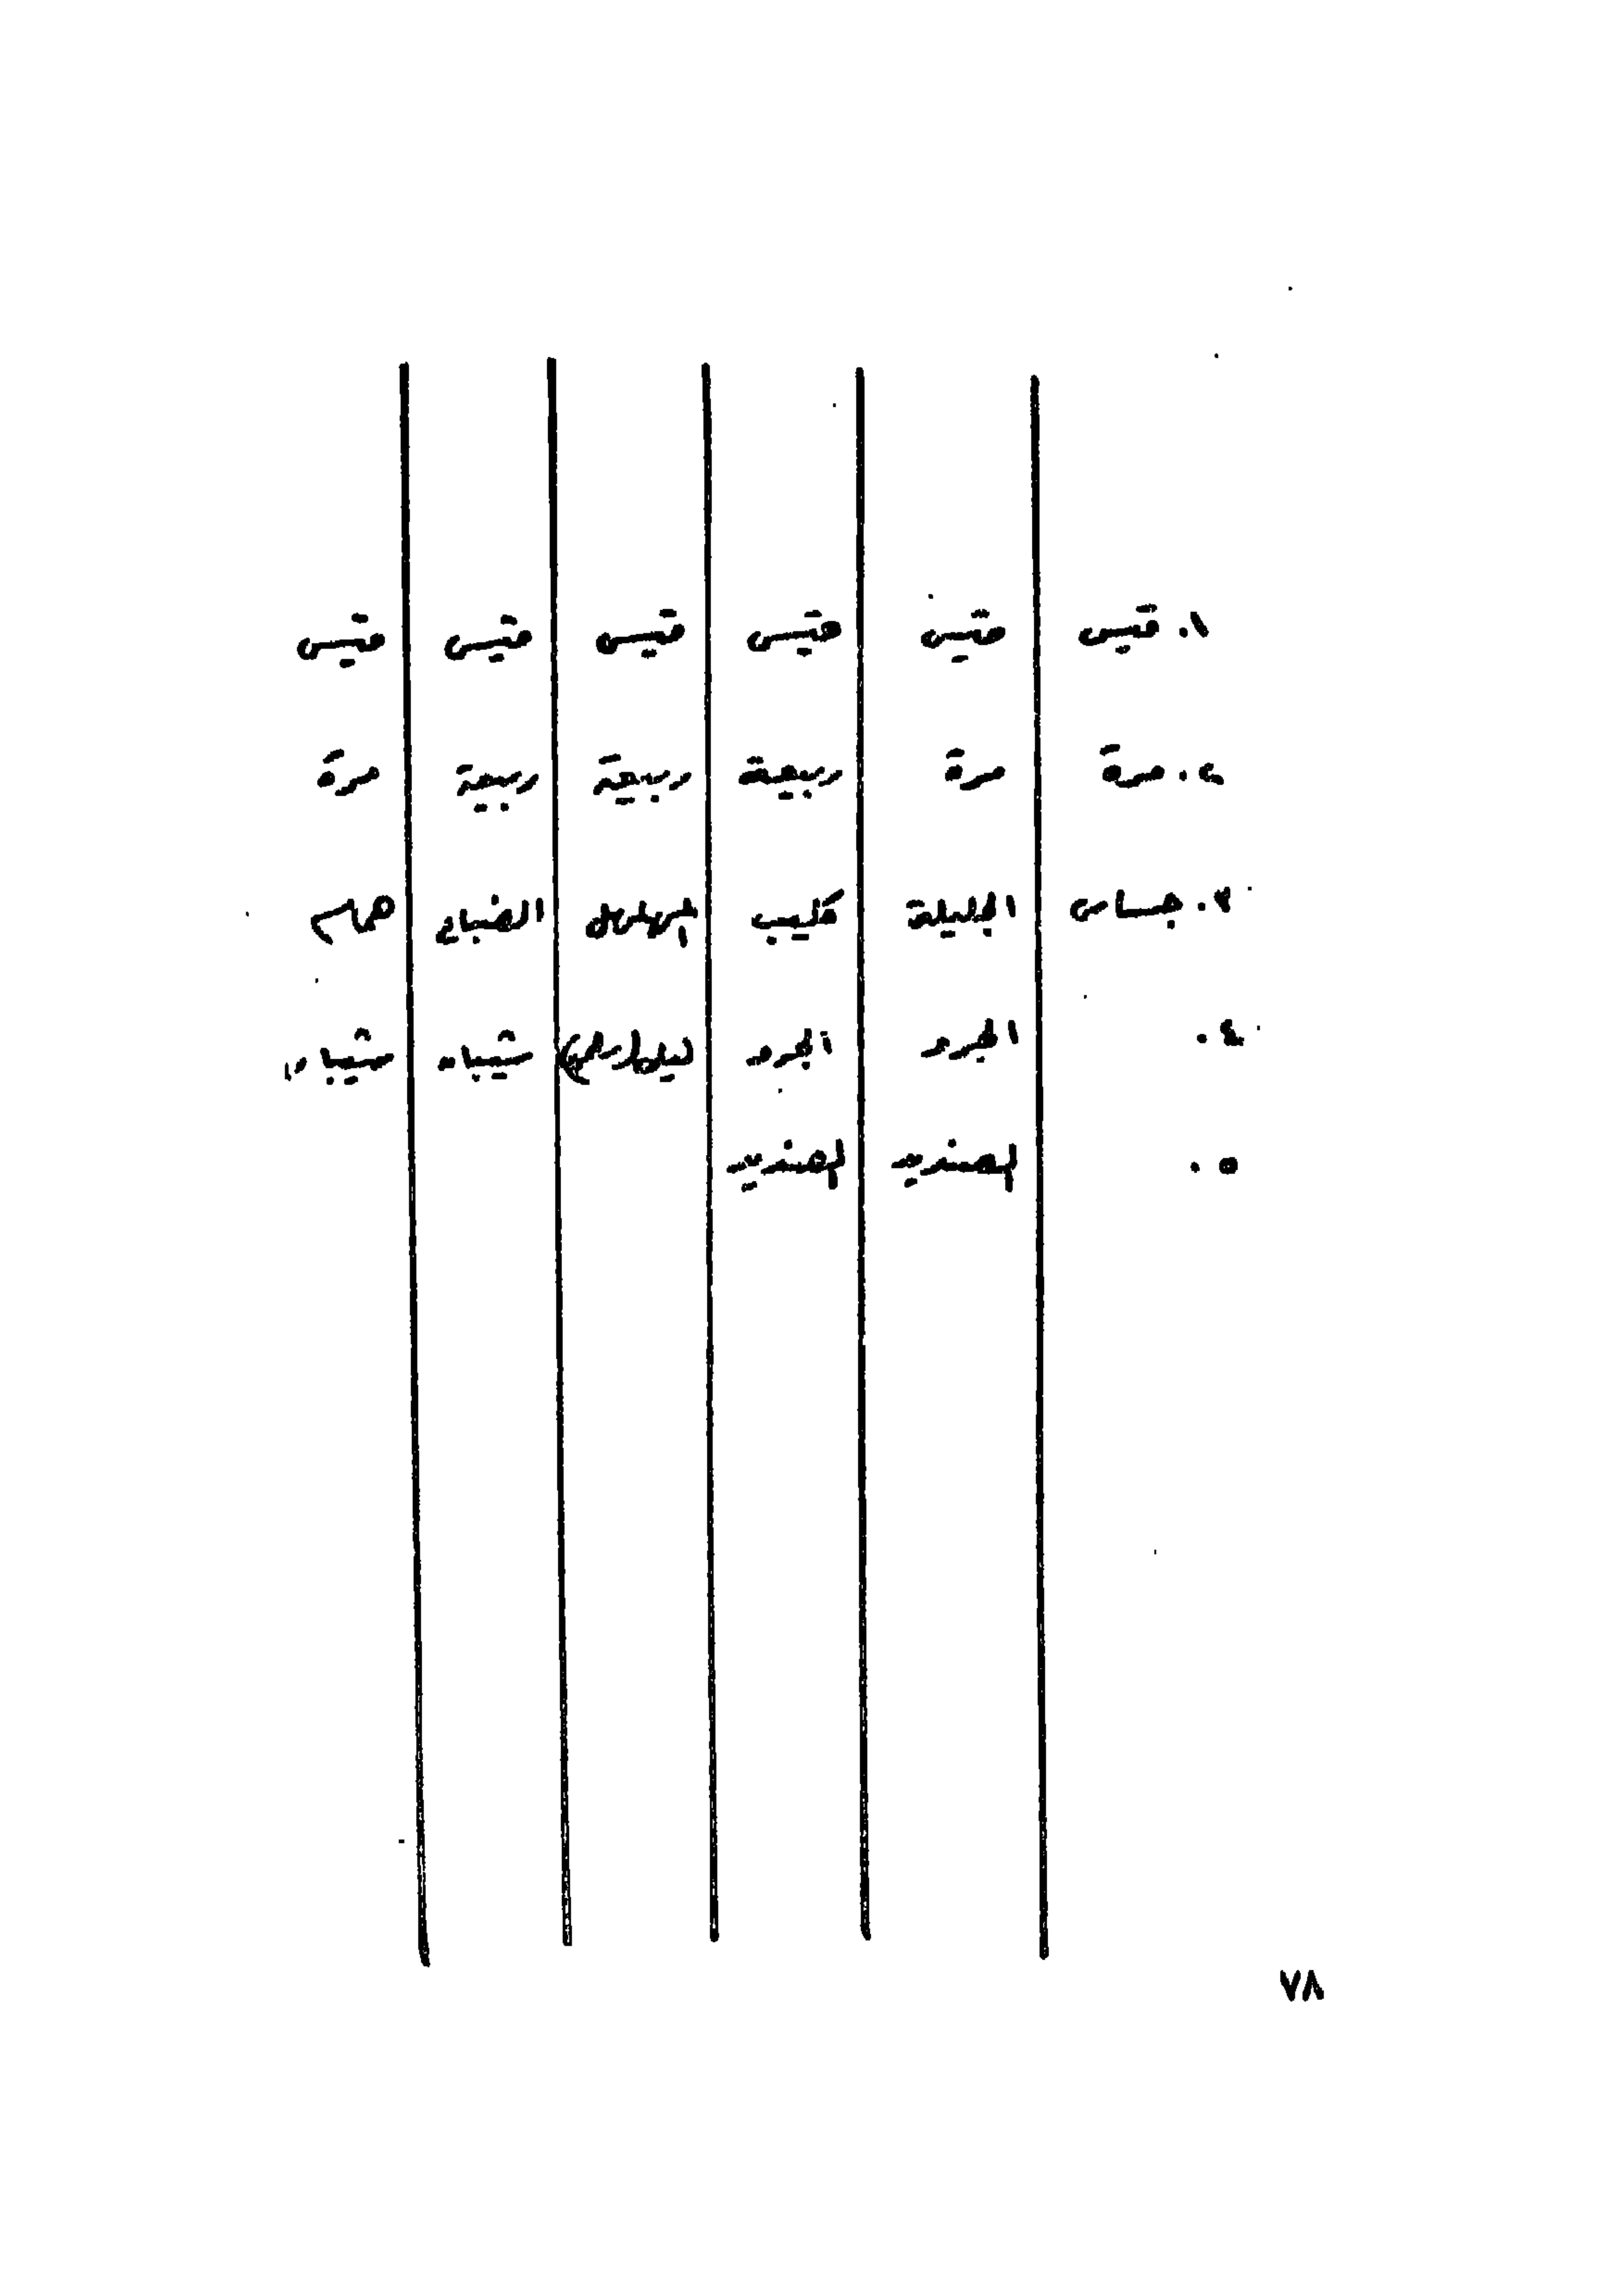 ١. قيس قيس قيس قيس قيس قيس
٢. مرة مرة ربيعة ربيعة ربيعة مرة
٣. جساس الجليلة كليب المهلهل الضباع همام
٤. الجرو الجرو شيبان شيبان
٥. الصنديد الصنديد
٧٨